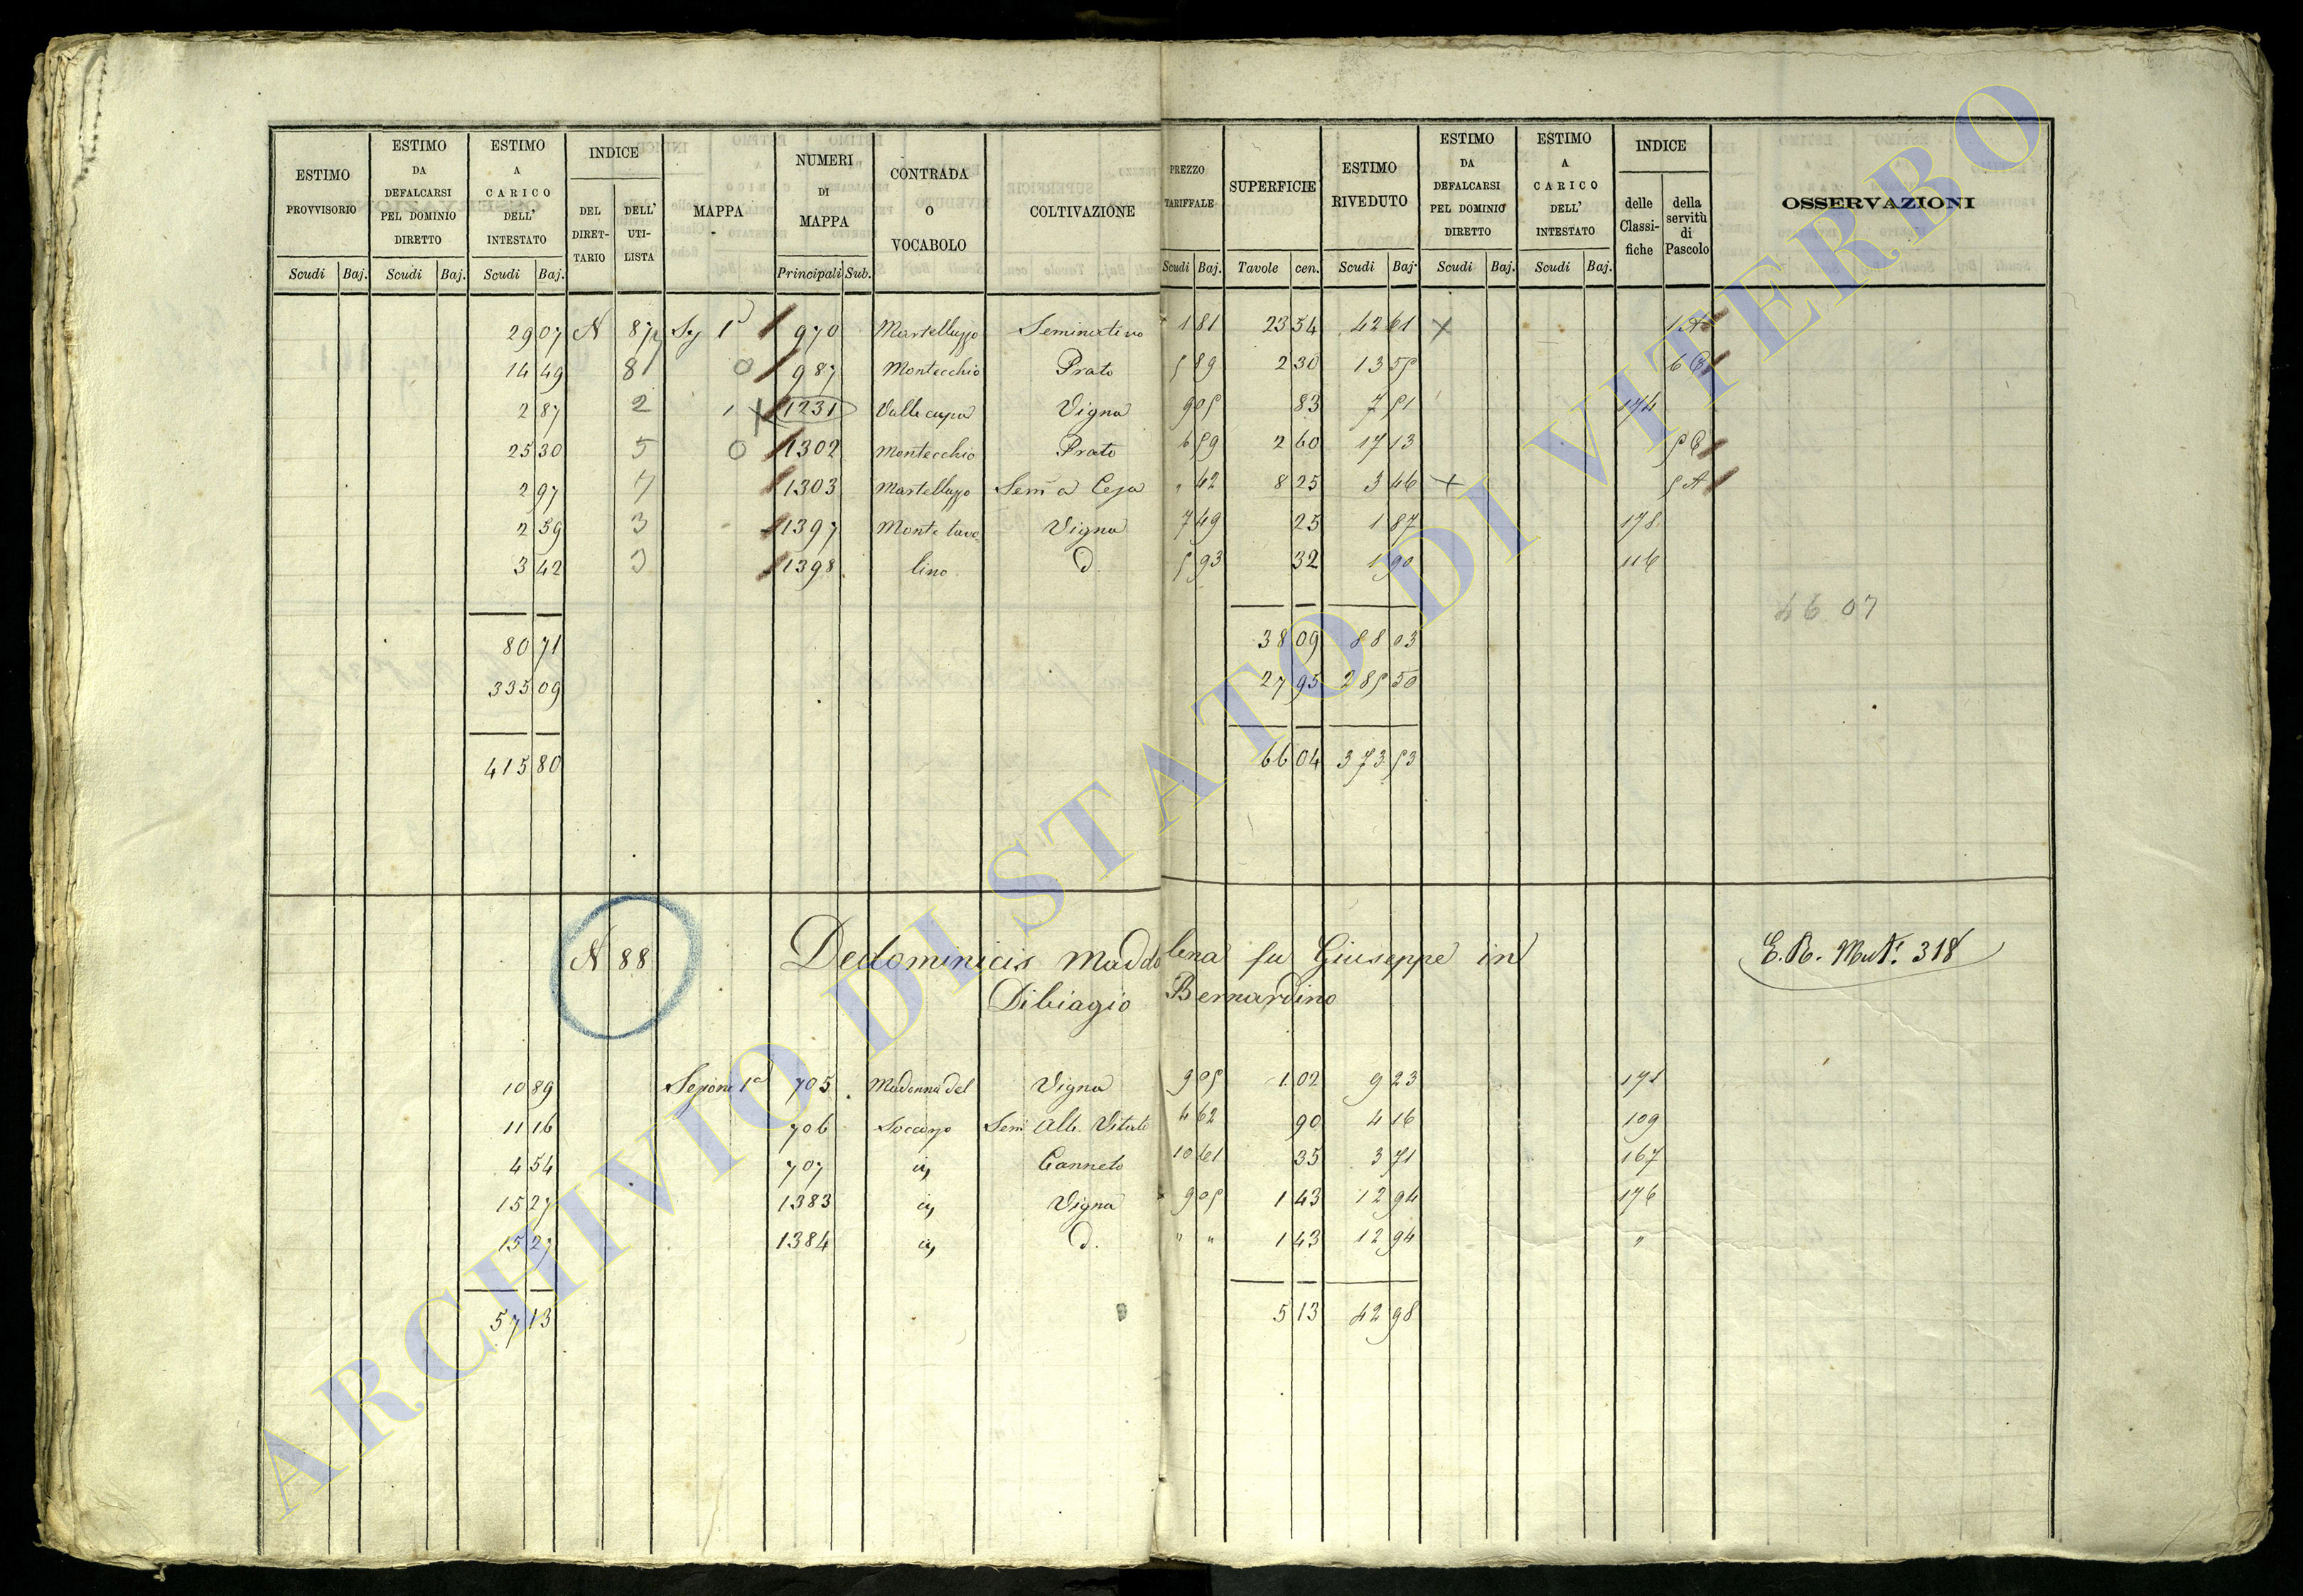 ESTIMO PROVVISORIO | ESTIMO DA DEFALCARSI PEL DOMINIO DIRETTO | ESTIMO A CARICO DELL' INTESTATO | INDICE DEL DIRETTARIO | DELL' UTILISTA | MAPPA | NUMERI DI MAPPA | CONTRADA O VOCABOLO | COLTIVAZIONE | PREZZO TARIFFALE | SUPERFICIE | ESTIMO RIVEDUTO | ESTIMO DA DEFALCARSI PEL DOMINIO DIRETTO | ESTIMO A CARICO DELL' INTESTATO | INDICE delle Classifiche | della servitù di Pascolo | OSSERVAZIONI
Scudi | Baj. | Scudi | Baj. | Scudi | Baj. | Principali | Sub. | Scudi | Baj. | Tavole | cen. | Scudi | Baj. | Scudi | Baj. | Scudi | Baj.
29 07 N 87 1a 970 Martelluzzo Seminativo 1 81 23 54 42 61 + 1 A
14 49 8 0 987 Montecchio Prato 5 89 2 30 13 55 6 E
2 87 2 1 + 1231 Valle cupa Vigna 9 05 83 7 51 174
25 30 5 0 1302 Montecchio Prato 6 59 2 60 17 13 5 E
2 97 7 1303 Martelluzzo Sem a Cesa " 42 8 25 3 46 + 5 A
2 59 3 1397 Monte tavo Vigna 7 49 25 1 87 178
3 42 3 1398 lino d. 5 93 32 1 90 116
46 07
80 71 38 09 88 03
335 09 27 95 285 50
415 80 66 04 373 53
N 88 Dedominicis Maddalena fu Giuseppe in E. R. Mut. 318
Dibiagio Bernardino
10 89 Sezione 1a 705 Madonna del Vigna 9 05 1 02 9 23 175
11 16 706 Soccorso Sem Alb. Vitato 4 62 90 4 16 109
4 54 707 Canneto 10 61 35 3 71 167
15 27 1383 Vigna 9 05 1 43 12 94 176
15 27 1384 d. " " 1 43 12 94 "
57 13 5 13 42 98
ARCHIVIO DI STATO DI VITERBO